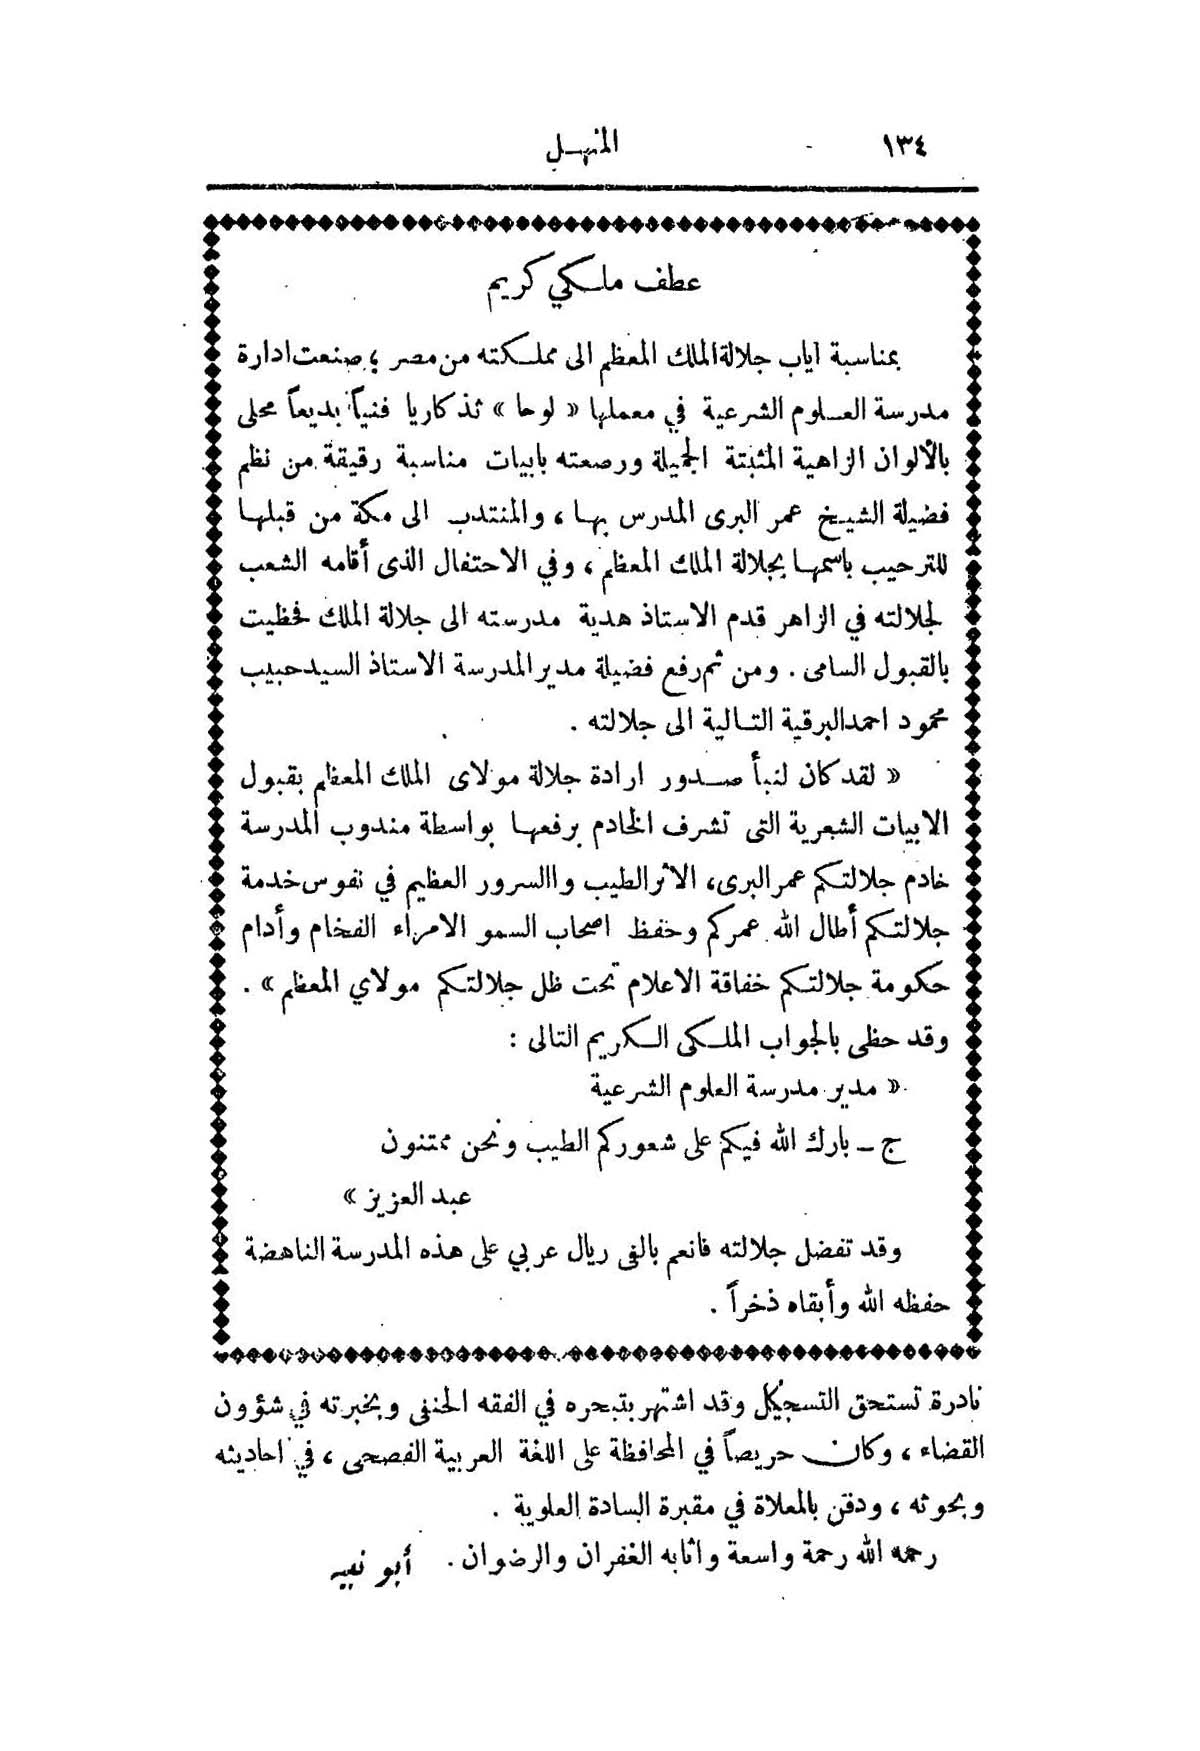 ١٣٤
المنهـل
عطف ملـكي كريم
بمناسبة اياب جلالة الملك المعظم الى مملـكته من مصر ؛ صنعت ادارة
مدرسة العـلوم الشرعية في معملها « لوحا » تذكاريا فنياً بديعاً محلى
بالألوان الزاهية المثبتة الجميلة ورصعته بابيات مناسبة رقيقة من نظم
فضيلة الشيـخ عمر البرى المدرس بهـا ، والمنتدب الى مكة من قبلهـا
للترحيب باسمهـا بجلالة الملك المعظم ، وفي الاحتفال الذى أقامه الشعب
لجلالته في الزاهر قدم الاستاذ هدية مدرسته الى جلالة الملك فحظيت
بالقبول السامى . ومن ثم رفع فضيلة مدير المدرسة الاستاذ السيد حبيب
محمود احمد البرقية التـالية الى جلالته .
« لقد كان لنبأ صـدور ارادة جلالة مولاى الملك المعظم بقبول
الابيات الشعرية التى تشرف الخادم برفعهـا بواسطة مندوب المدرسة
خادم جلالتـكم عمر البرى، الاثر الطيب واالسرور العظيم في نفوس خدمة
جلالتـكم أطال الله عمركم وحفظ اصحاب السمو الامراء الفخام وأدام
حكومة جلالتـكم خفاقة الاعلام تحت ظل جلالتـكم مولاي المعظم » .
وقد حظى بالجواب الملـكى الـكريم التالى :
« مدير مدرسة العلوم الشرعية
ج ــ بارك الله فيكم على شعوركم الطيب ونحن ممتنون
عبد العزيز »
وقد تفضل جلالته فانعم بالفى ريال عربي على هذه المدرسة الناهضة
حفظه الله وأبقاه ذخراً .
نادرة تستحق التسجيل وقد اشتهر بتبحره في الفقه الحنفى وبخبرته في شؤون
القضاء ، وكان حريصاً في المحافظة على اللغة العربية الفصحى ، في احاديثه
وبحوثه ، ودفن بالمعلاة في مقبرة السادة العلوية .
رحمه الله رحمة واسعة واثابه الغفران والرضوان . أبو نبيه